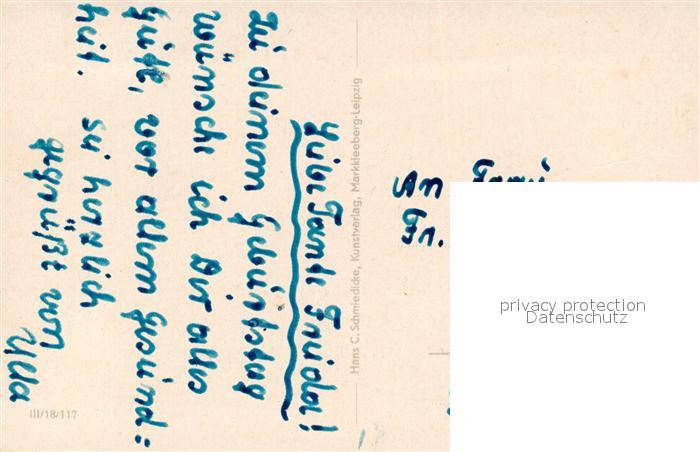 Liebe Tante Frieda!
Zu deinem Geburtstag
wünsche ich Dir alles
Gute, vor allem Gesund=
heit. Sei herzlich
gegrüßt von
Ulla
III/18/117
Hans C. Schmiedicke, Kunstverlag, Markkleeberg-Leipzig
An
Fr.
privacy protection
Datenschutz